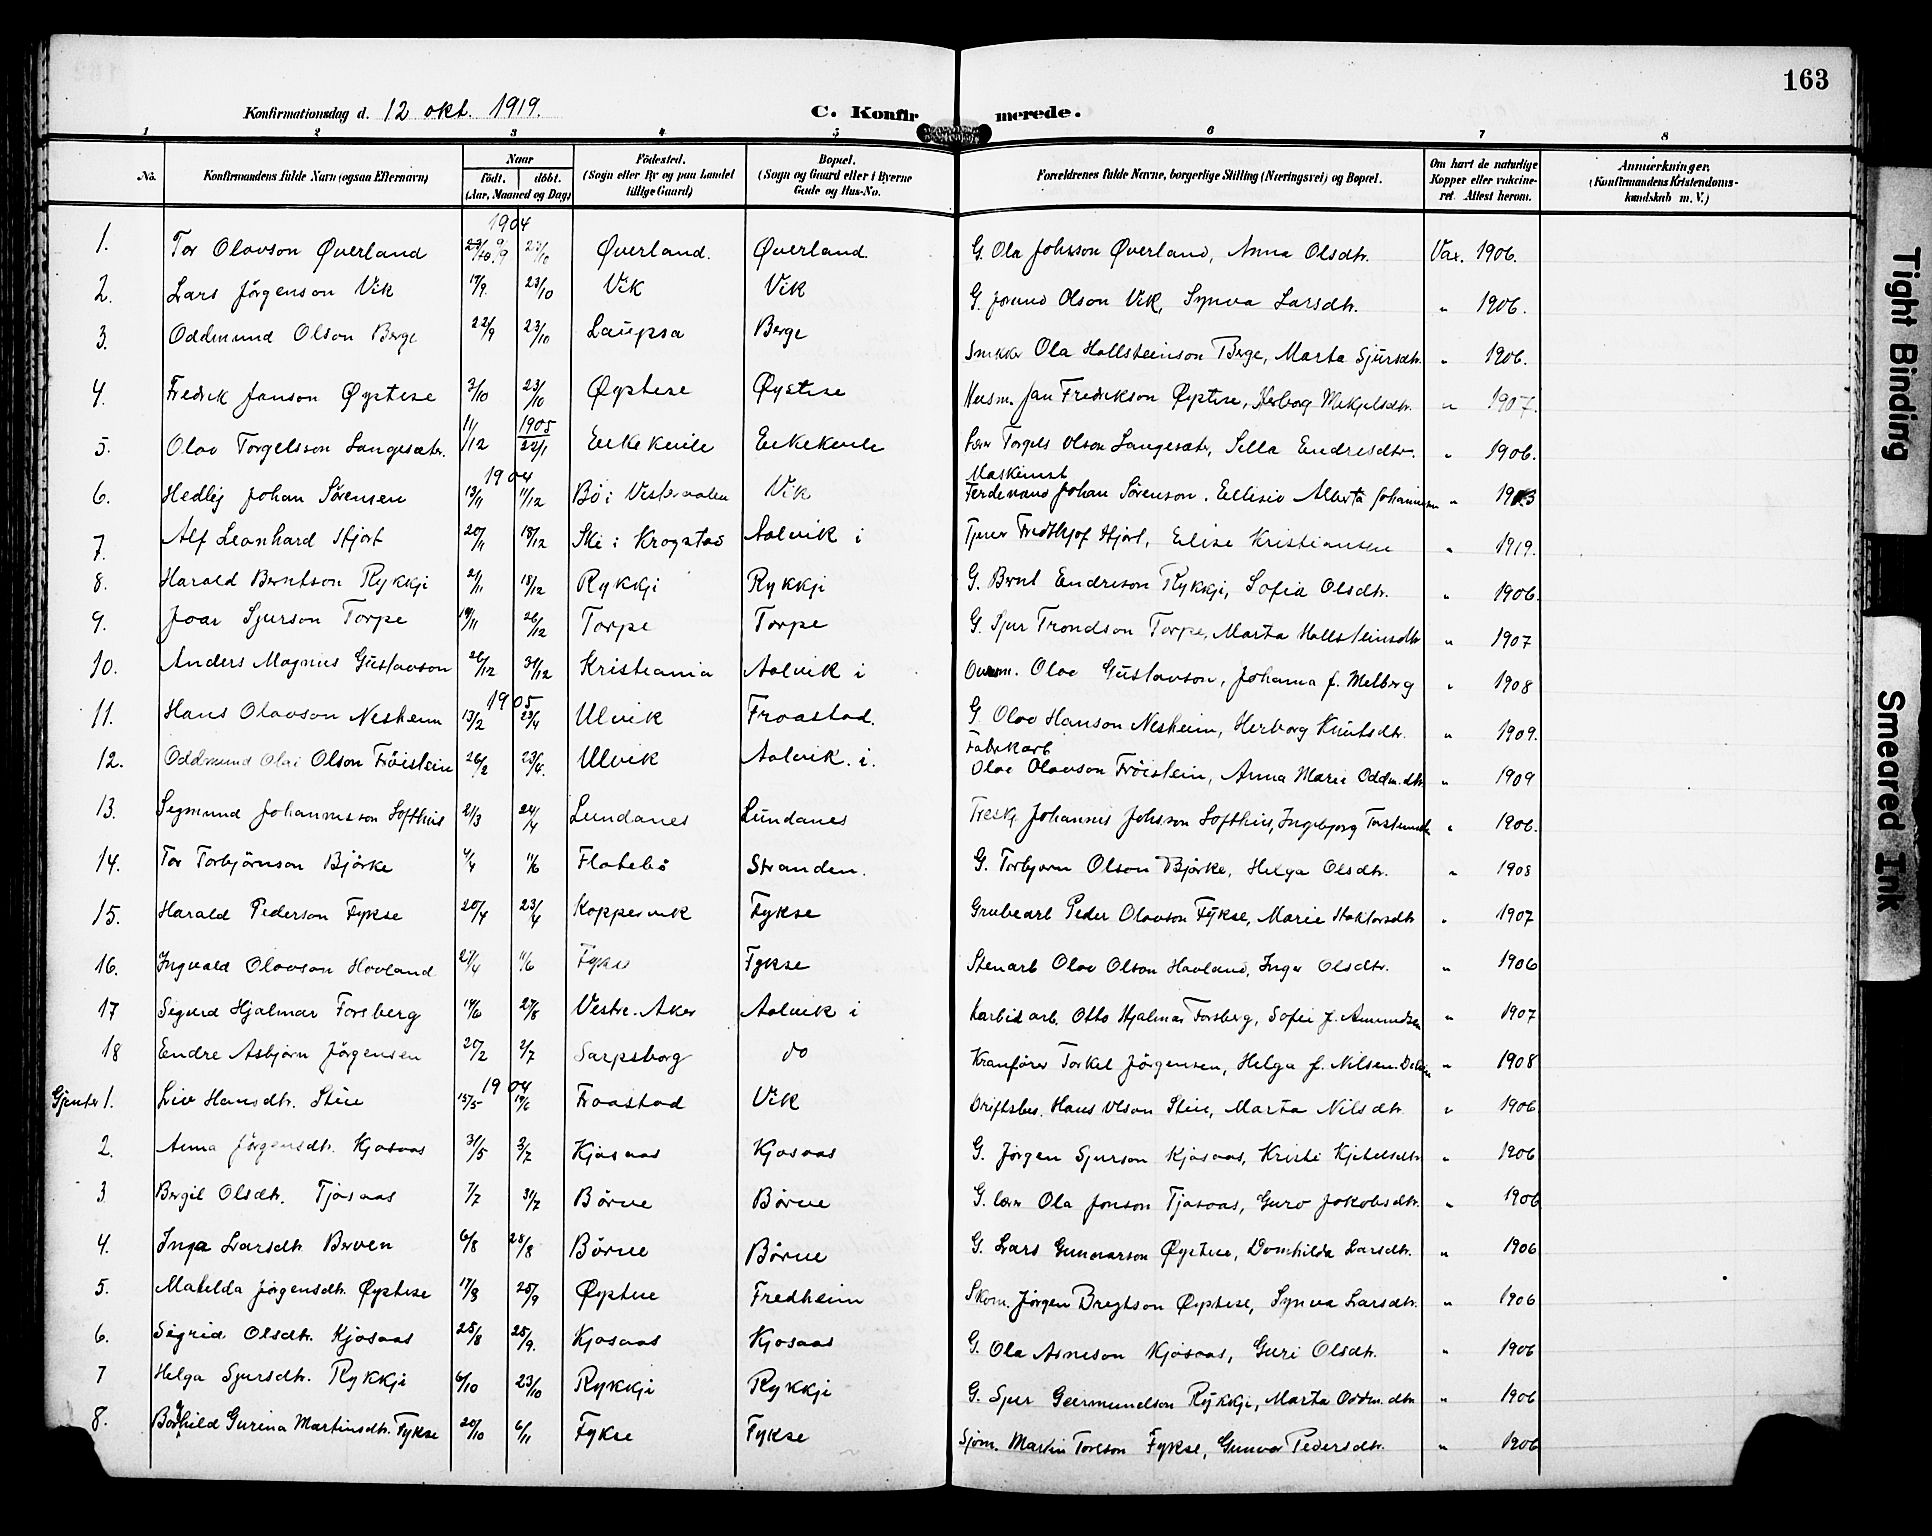 163
Konfirmationsdag d. 12 okt. 1919.
C. Konfirmerede.
1 2 3 4 5 6 7 8
No. Konfirmandens fulde Navn (ogsaa Efternavn) Naar født. døbt. (Aar, Maaned og Dag) Fødested. (Sogn eller By og paa Landet tillige Gaard) Bopæl. (Sogn og Gaard eller i Byerne Gade og Hus-No. Forældrenes fulde Navne, borgerlige Stilling (Næringsvei) og Bopæl. Om havt de naturlige Kopper eller vakcineret. Attest herom. Anmærkninger. (Konfirmandens Kristendomskundskab m. V.)
1904
1. Tor Olavson Øverland 9/9 23/10 Øverland. Øverland. G. Ola Johnson Øverland, Anna Olsdtr. Vax. 1906.
2. Lars Jörgenson Vik 17/9. 23/10 Vik Vik G. Olson Vik, Synva Larsdtr. " 1906.
3. Oddmund Olson Berge 22/9 23/10 Laupsa Berge Snikker Ola Hallsteinson Berge, Marta Sjursdtr. " 1906.
4. Fredrik Janson Øystese 3/10 23/10 Øystese Øystese Husm. Jan Fredrikson Øystese, Herborg Mikjelsdtr. " 1907.
1905
5. Olav Torgelsson Langesæter. 11/12 22/1 Eikekvile Eikekvile Lærer Torgels Olson Langesæter, Silla Endresdtr. " 1906.
1904
6. Hedlej Johan Sørensen 13/11 11/12 Bö i Vesteraalen Vik Maskinist Ferdinand Johan Sørenson. Ellisiv Alberta Johannesen " 1913
7. Alf Leonhard Hjort 20/11 18/12 Ski i Krogstad Aalvik i Fredthjof Hjort, Elise Kristiansen " 1919.
8. Harald Berntson Rykkji 21/11 18/12 Rykkji Rykkji G. Bernt Endreson Rykkji, Sofia Olsdtr. " 1906.
9. Joar Sjurson Torpe 19/11 26/12 Torpe Torpe G. Sjur Trondson Torpe, Marta Hallsteinsdtr " 1907
10. Anders Magnus Gustavson 26/12 31/12 Kristiania Aalvik i Olav Gustavson, Johanna f. Melberg " 1908
1905
11. Hans Olavson Nesheim 13/2 23/4 Ulvik Froastad. G. Olav Hanson Nesheim, Herborg Knutsdtr. " 1909.
12. Oddmund Olai Olson Fröistein 26/2 23/4. Ulvik Aalvik. i. Fabrikarb Olav Olavson Fröistein, Anna Marie Oddm.dtr " 1909
13. Segmund Johannesson Softhus 21/3 24/4 Lundanes Lundanes Johannes Johsson Softhus, Ingebjorg " 1906.
14. Tor Torbjörnson Björke 4/4 11/6 Flatebö Stranden. G. Torbjorn Olson Björke, Helga Olsdtr. " 1908
15. Harald Pederson Fykse 20/4 23/4 Koppervik Fykse Grubearb Peder Olavson Fykse, Marie " 1907
16. Ingvald Olavson Hovland 27/4 11/6 Fykse Fykse Stenarb Olav Olson Havland, Inger Olsdtr. " 1906
17 Sigurd Hjalmar Forsberg 14/6 27/8 Vestre. Aker Aalvik i Karbid arb. Otto Hjalmar Forsberg, Sofie f. Amundsen " 1907
18 Endre Asbjørn Jörgensen 20/2 2/7 Sarpsborg do Kranfører Torkel Jörgensen, Helga f. Nilsen. " 1908
1904
Gjenter 1. Liv Hansdtr. Stue 15/5 19/6 Froastad Vik Driftsbes. Hans Olson Stue, Marta Nilsdtr " 1906
2. Anna Jörgensdtr. Kjosaas 31/5 3/7 Kjosaas Kjosaas G. Jörgen Sjurson Kjosaas, Kristi Kjetelsdtr " 1906
3 Bergit Olsdtr. Tjosaas 7/7 31/7 Børve Børve G. lærer Ola Jonson Tjosaas, Guro Jakobsdtr. " 1906
4. Inga Larsdtr Berven 6/8 28/8 Børve Børve G. Lars Gunnarson Øystese, Domhilda Larsdtr. " 1906
5. Matelda Jörgensdtr. Øystese 17/8 25/9 Øystese Fredheim Skom. Jørgen Brygtson Øystese, Synva Larsdtr. " 1906
6. Sigrid Olsdtr. Kjosaas 25/8 25/9. Kjosaas Kjosaas G. Ola Arneson Kjosaas, Guri Olsdtr. " 1906
7 Helga Sjursdtr. Rykkje 6/10 23/10 Rykkji Rykkji G. Sjur Geirmundson Rykkji, Marta Oddm.dtr " 1906
8. Borghild Gurina Martinsdtr. Fykse 20/10 6/11 Fykse Fykse Sjøm. Martin Torlson Fykse, Gunvor Pedersdtr. " 1906
Tight Binding
Smeared Ink